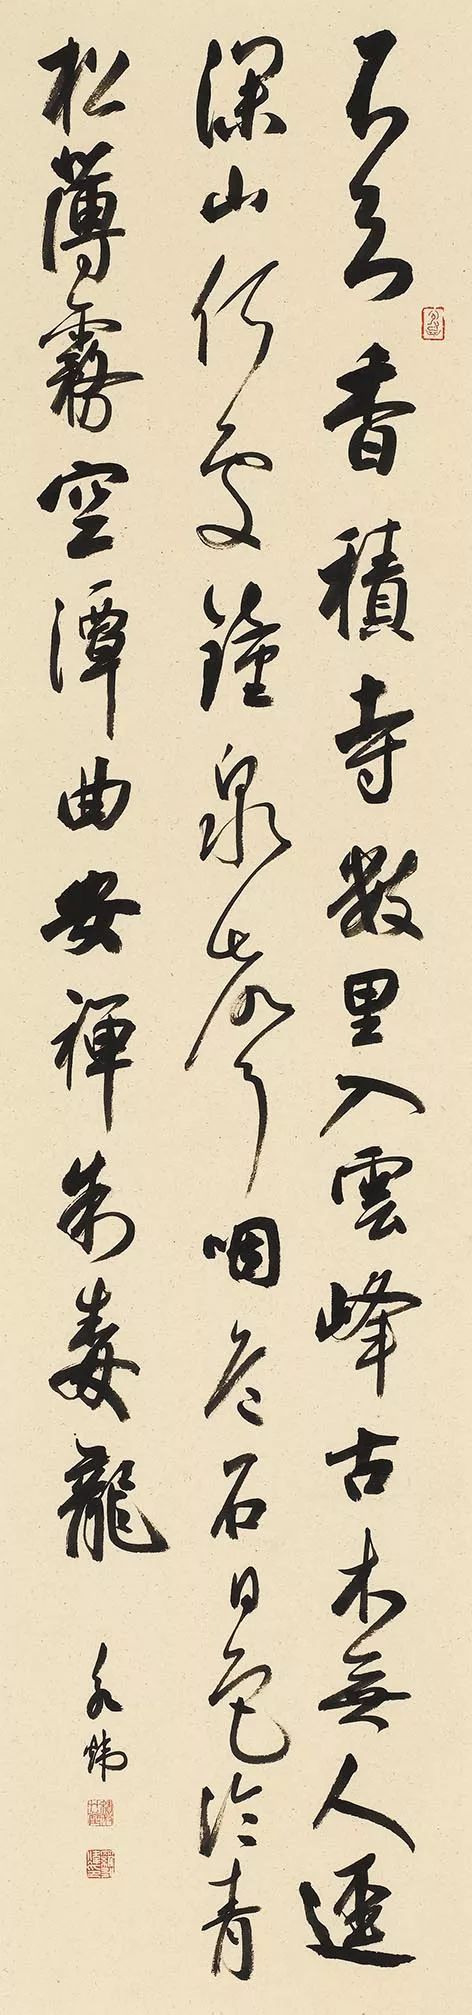 不知香積寺數里入雲峰古木無人逕
深山何處鐘泉聲咽危石日色冷青
松薄霧空潭曲安禪制毒龍
永煒